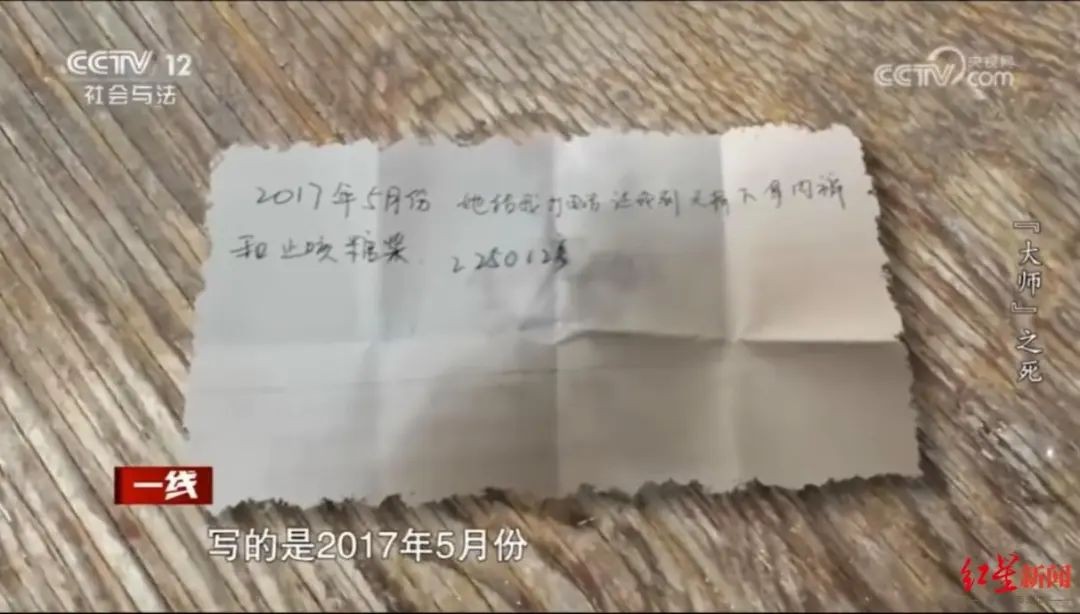 CCTV 12
社会与法
央视网
CCTV.com
2017年5月份 她给我打电话让我到无锡下身内裤
和止咳糖浆. 225012
『大师』之死
一线
写的是2017年5月份
红星新闻